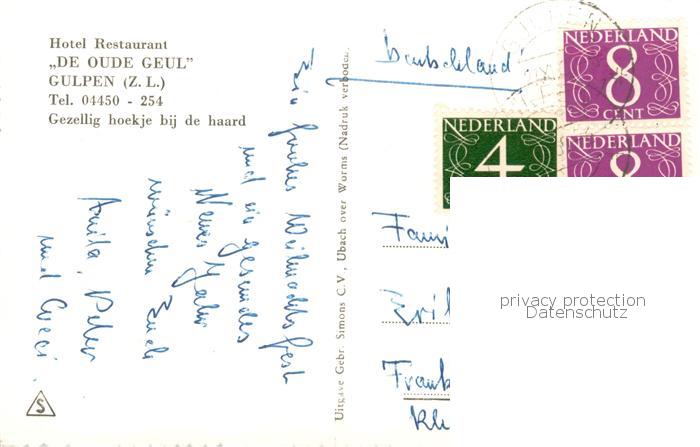 Hotel Restaurant
„DE OUDE GEUL”
GULPEN (Z. L.)
Tel. 04450 - 254
Gezellig hoekje bij de haard
Ein frohes Weihnachtsfest
und ein gesundes
Neues Jahr
wünschen Euch
Anita, Peter
und
Uitgave Gebr. Simons C.V., Ubach over Worms (Nadruk verboden.
Deutschland
NEDERLAND
8
CENT
NEDERLAND
4
NEDERLAND
8
Fami
Eri
Frank
privacy protection
Datenschutz
S